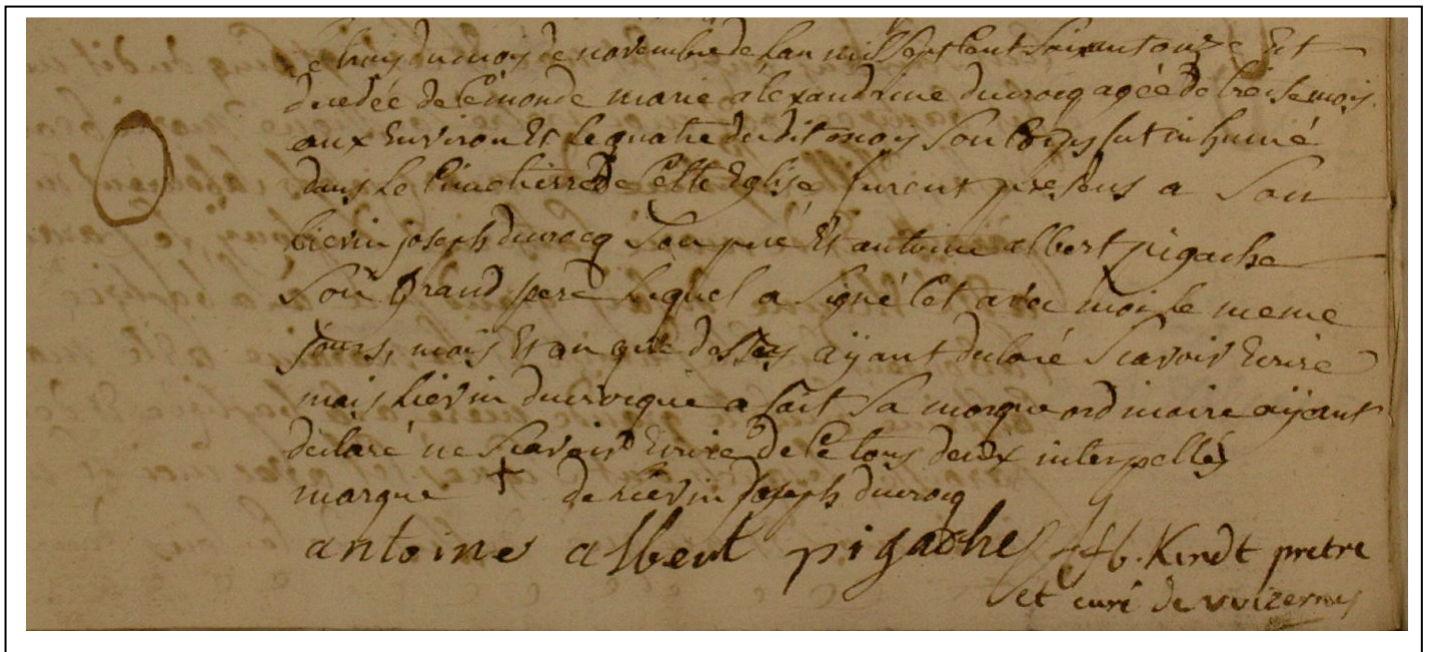 Le trois du mois de novembre de l'an mil sept cent soixante onze Est
decedée de Ce monde marie alexandrine ducrocq agée de treise mois
aux Environ Et Le quatre du dit mois Son Corps fut inhumé
dans Le Cimetierre de Cette Eglise furent presens a Son
lievin joseph ducrocq Son pere Et antoine albert pigache
Son Grand pere Lequel a Signé Cet avec moi Le meme
jours, mois Et an que dessus aÿant declaré Scavoir Ecrire
mais Lievin ducrocque a fait Sa marque ordinaire aÿant
declaré ne Scavoir Ecrire de Ce tous deux interpellés
marque + de Lievin Joseph ducrocq
antoine albert pigache f. b. Kindt pretre
et curé de wizernes